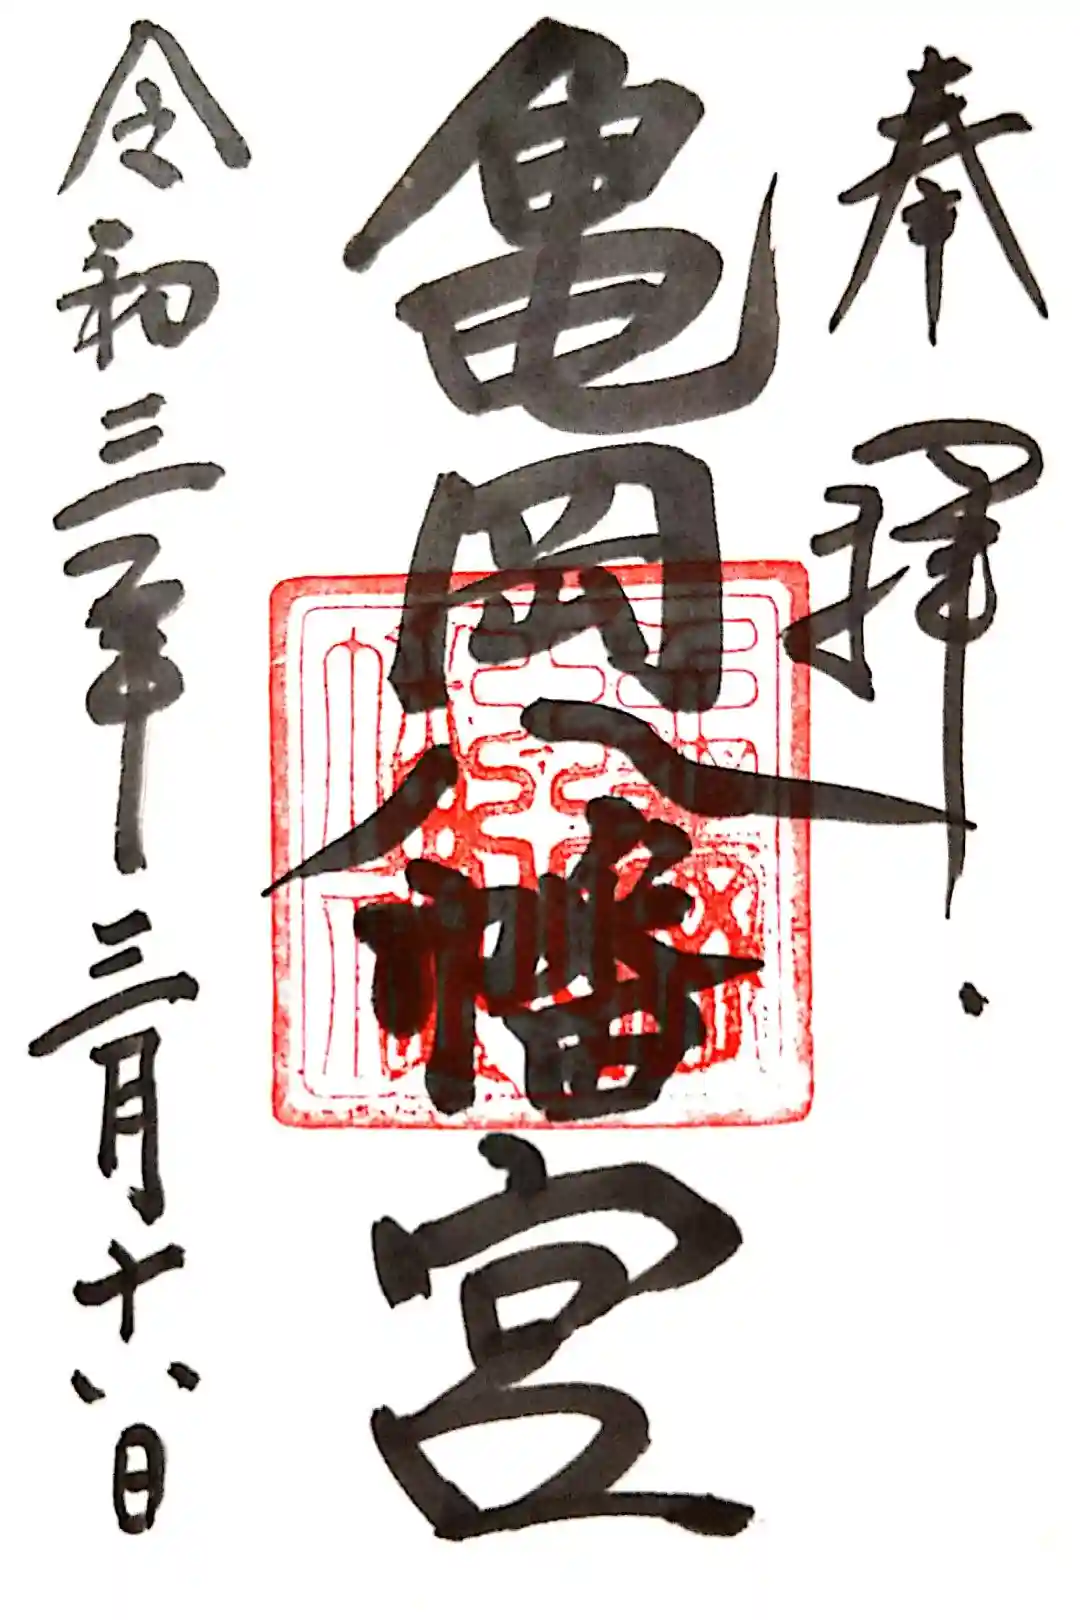 奉拝
亀岡八幡宮
令和三年三月十八日